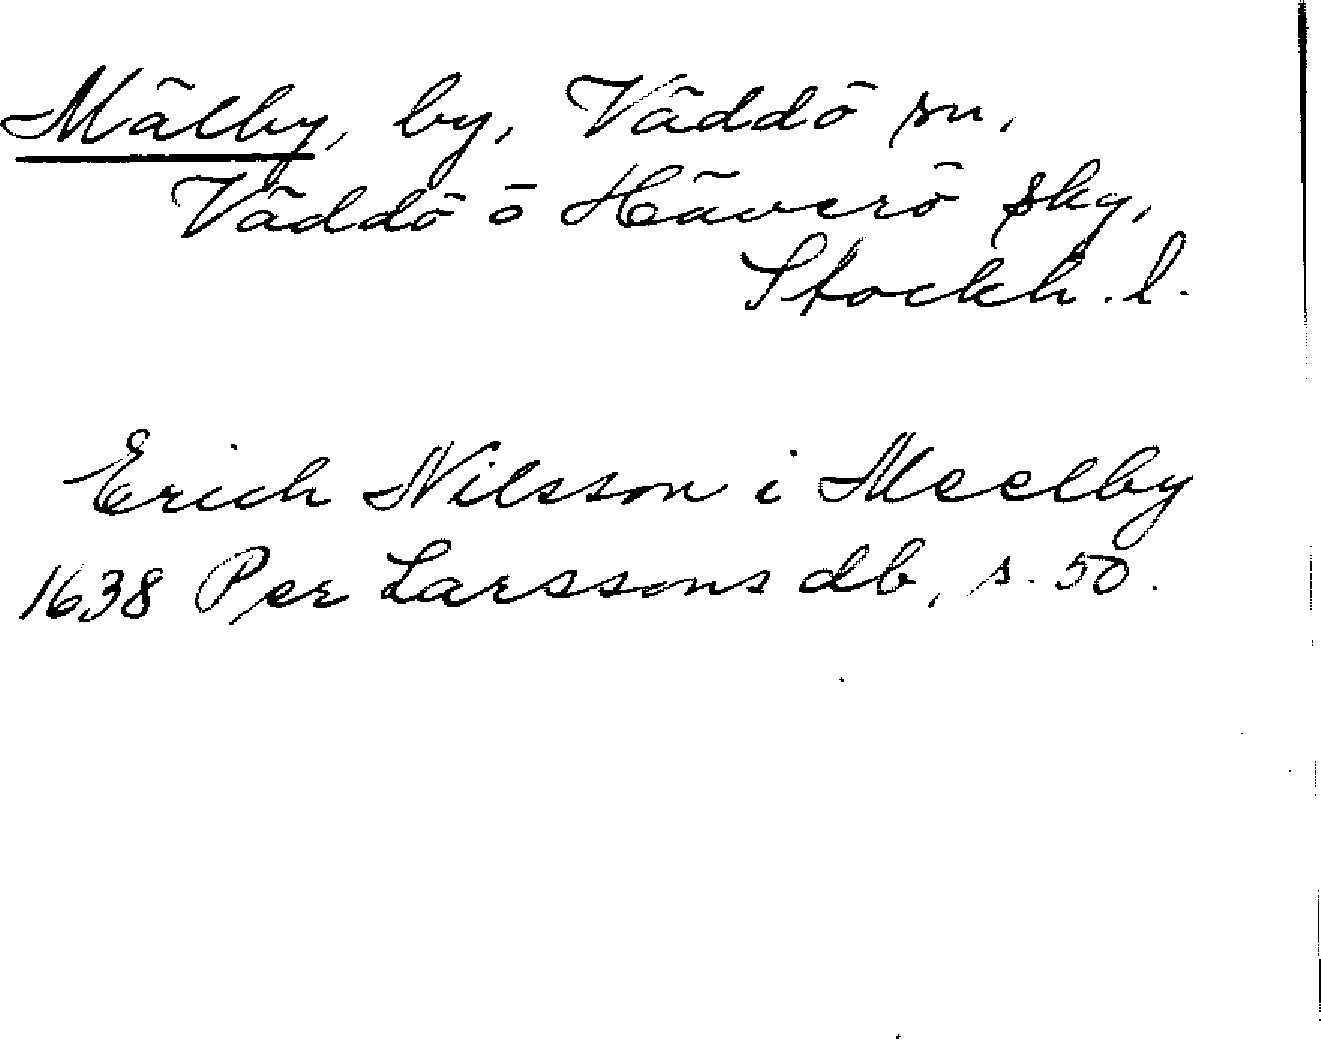 Mälby, by, Väddö sn.
Väddö o Häverö skg,
Stockh. l.
Erich Nilsson i Meelby
1638 Per Larssons db, s. 50.